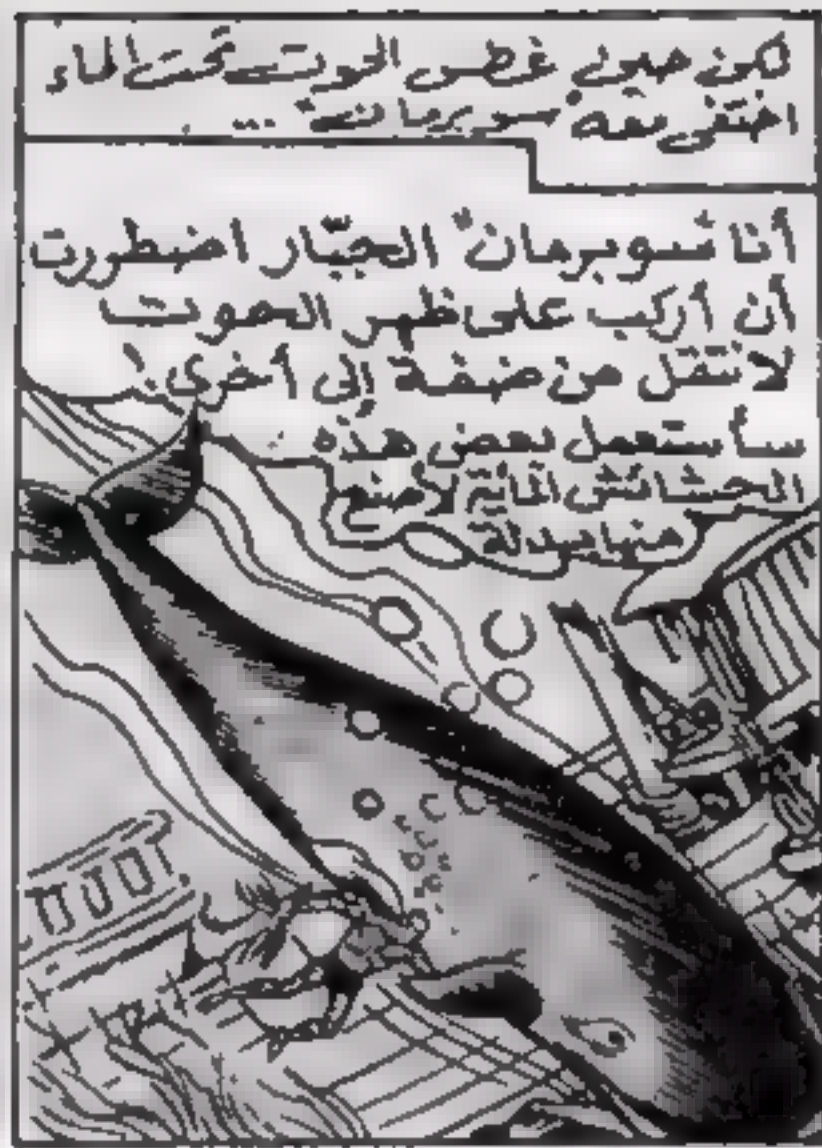 لكن حين غطس الحوت تحت الماء
اختفى معه "سوبرمان" ...
أنا "سوبرمان" الجبّار اضطررت
أن أركب على ظهر الحوت
لأنتقل من ضفة إلى أخرى!
سأستعمل بعض هذه
الحشائش المائية لأصنع
منها بدلة